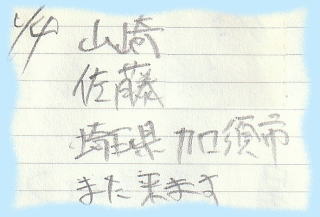 1/4 山崎
佐藤
埼玉県加須市
また来ます